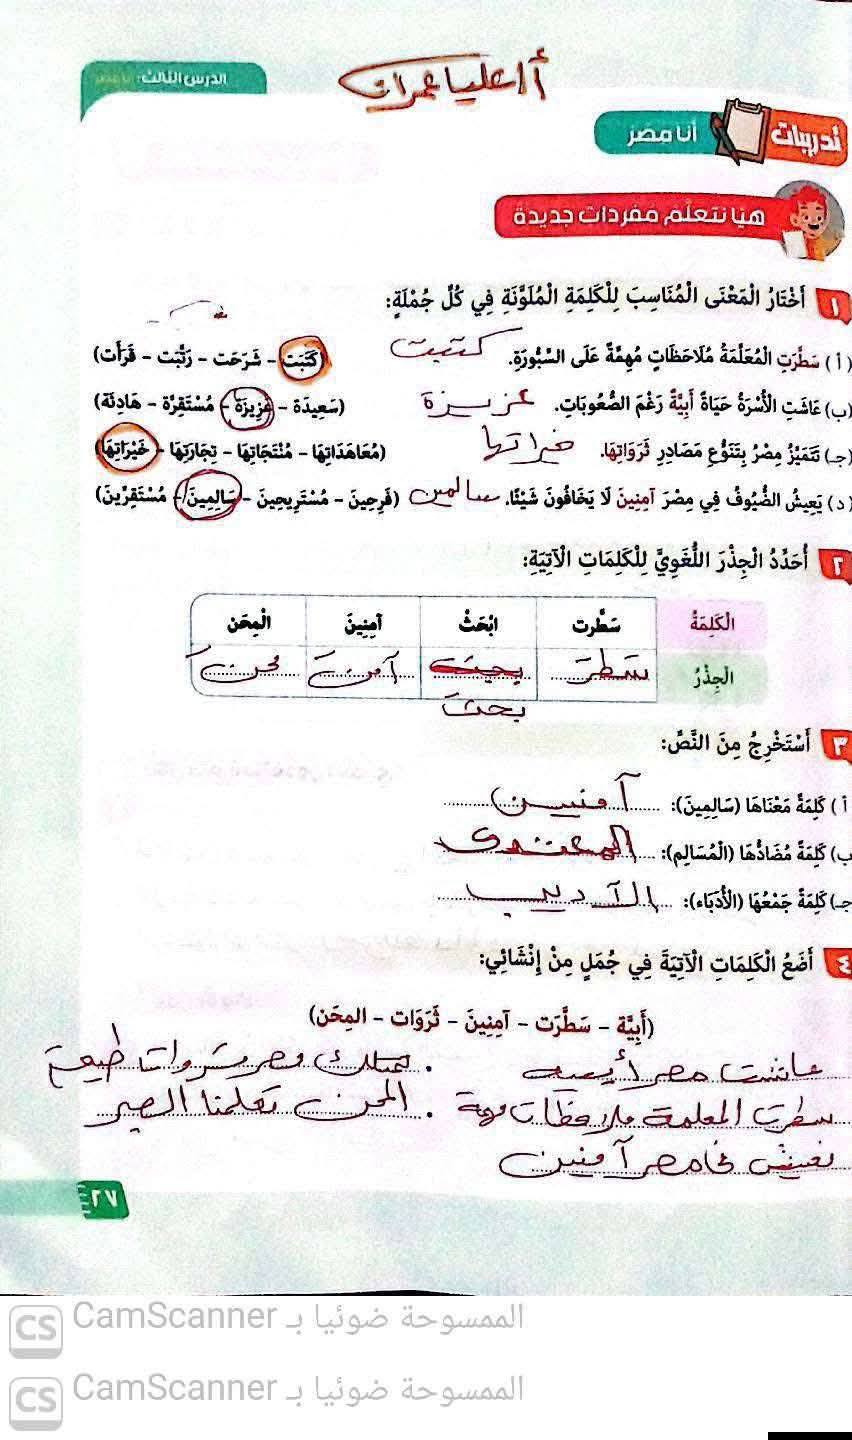 أ/ علياء عمران
الدرس الثالث: أنا مصر
تدريبات
أنا مصر
هيا نتعلم مفردات جديدة
١ أَخْتَارُ الْمَعْنَى الْمُنَاسِبَ لِلْكَلِمَةِ الْمُلَوَّنَةِ فِي كُلِّ جُمْلَةٍ:
(أ) سَطَّرَتِ الْمُعَلِّمَةُ مُلَاحَظَاتٍ مُهِمَّةً عَلَى السَّبُّورَةِ. كتبت (كَتَبَت - شَرَحَت - رَتَّبَت - قَرَأَت)
(ب) عَاشَتِ الْأُسْرَةُ حَيَاةً أَبِيَّةً رَغْمَ الصُّعُوبَاتِ. عزيزة (سَعِيدَة - عَزِيزَة - مُسْتَقِرَّة - هَادِئَة)
(جـ) تَتَمَيَّزُ مِصْرُ بِتَنَوُّعِ مَصَادِرِ ثَرَوَاتِهَا. خيراتها (مُعَاهَدَاتِهَا - مُنْتَجَاتِهَا - تِجَارَتِهَا - خَيْرَاتِهَا)
(د) يَعِيشُ الضُّيُوفُ فِي مِصْرَ آمِنِينَ لَا يَخَافُونَ شَيْئًا. سالمين (فَرِحِينَ - مُسْتَرِيحِينَ - سَالِمِينَ - مُسْتَقِرِّينَ)
٢ أُحَدِّدُ الْجِذْرَ اللُّغَوِيَّ لِلْكَلِمَاتِ الْآتِيَةِ:
الْكَلِمَةُ سَطَّرت ابْحَثْ آمِنِينَ الْمِحَن
الْجِذْرُ سَطَرَ بحث آمنَ محنَ
بحثَ
٣ أَسْتَخْرِجُ مِنَ النَّصِّ:
أ) كَلِمَةً مَعْنَاهَا (سَالِمِينَ): آمنين
ب) كَلِمَةً مُضَادُّهَا (الْمُسَالِم): المعتدى
جـ) كَلِمَةً جَمْعُهَا (الْأُدَبَاء): الآديب
٤ أَضَعُ الْكَلِمَاتِ الْآتِيَةَ فِي جُمَلٍ مِنْ إِنْشَائِي:
(أَبِيَّة - سَطَّرَت - آمِنِينَ - ثَرَوَات - المِحَن)
عاشت مصر أبية . تمتلك مصر ثروات طبيعية
سطرت المعلمة ملاحظات مهمة . المحن تعلمنا الصبر
نعيش في مصر آمنين
٢٧
الممسوحة ضوئيا بـ CamScanner
الممسوحة ضوئيا بـ CamScanner